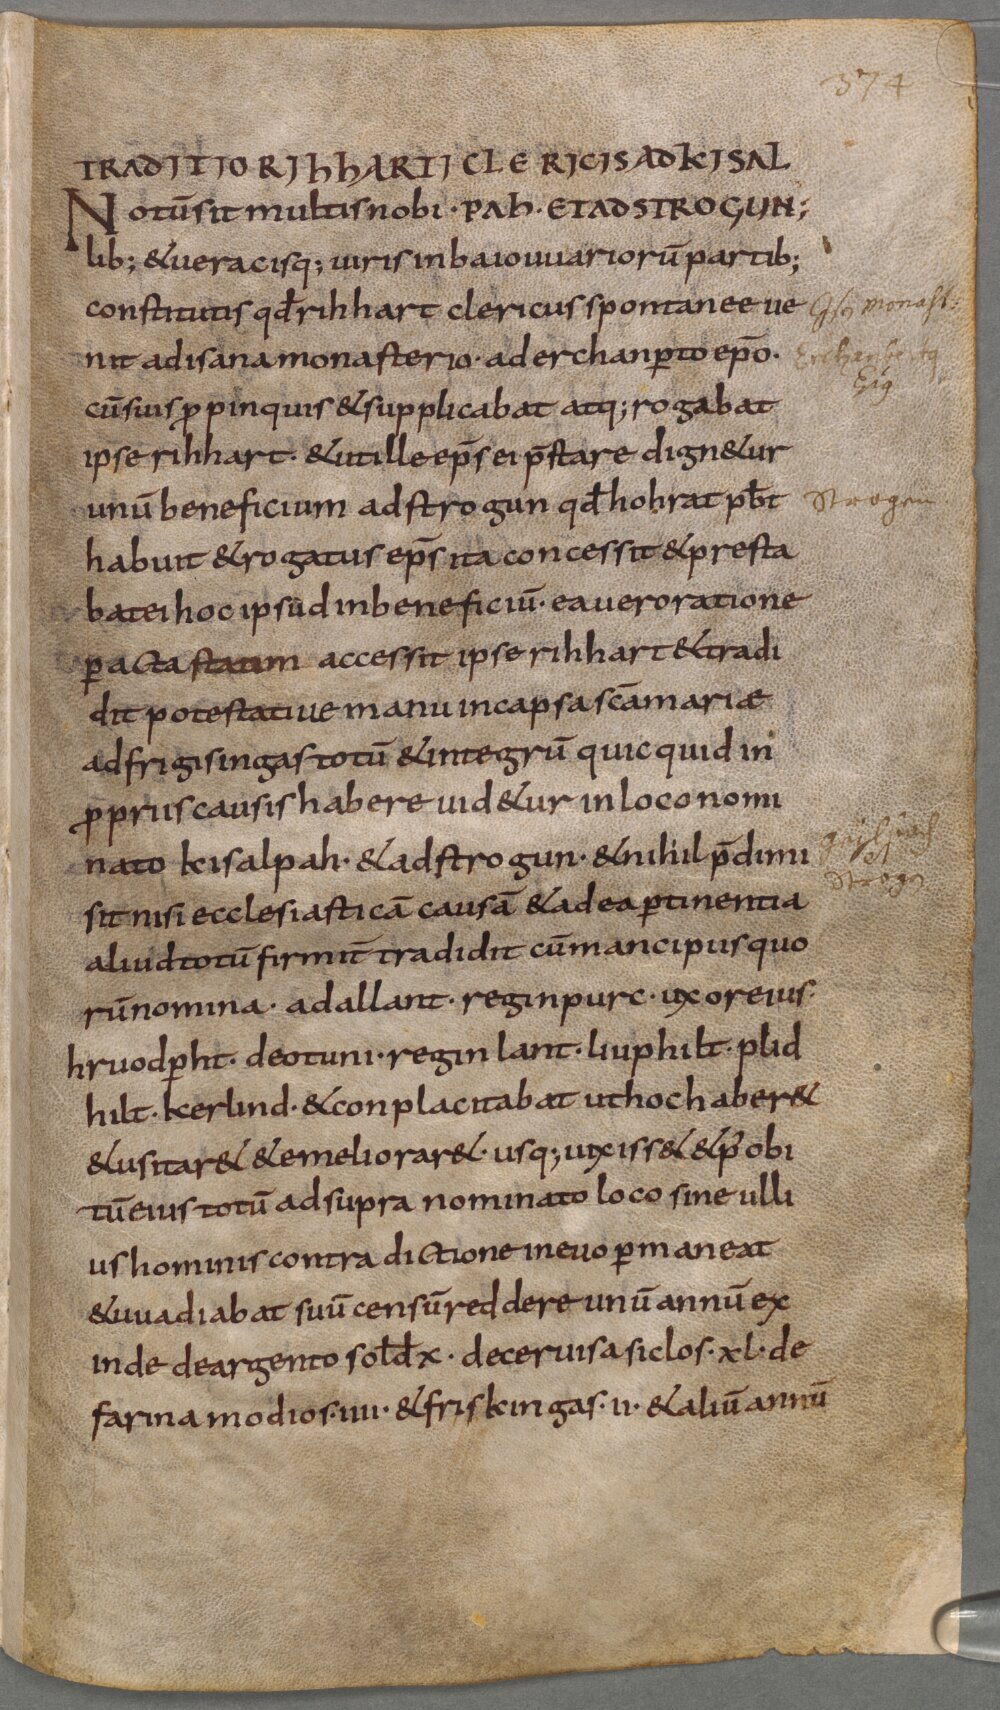 374
TRADITIO RIHHARTI CLERICIS AD KISAL
Notū sit multis nobi · PAH · ET AD STROGUN;
lib; & veracisq; uiris in baiouuariorū partib;
constitutis qđ rihhart clericus spontanee ue
nit ad isana monasterio · ad erchanꝑto ep̄o ·
cū suis ꝓpinquis & supplicabat atq; rogabat
ipse rihhart · & ut ille ep̄s ei p̄stare dign&ur
unū beneficium ad strogun qđ hohrat pƀt
habuit & rogatus ep̄s ita concessit & presta
bat ei hoc ipsud in beneficiū · ea uero ratione
ꝑacta statim accessit ipse rihhart & tradi
dit potestatiue manu in capsa scām mariæ
ad frigisingas totū & integrū quicquid in
ꝓpriis causis habere uid&ur in loco nomi
nato kisalpah · & ad strogun · & nihil p̄dimi
sit nisi ecclesiasticā causā & ad ea ꝑtinentia
aliud totū firmit̄ tradidit cū mancipiis quo
rū nomina · adallant · reginpurc · uxor eius ·
hruodꝑht · deotuni · reginlant · liuphilt · plid
hilt · kerlind · & conplacitabat ut hoc haber&
& usitar& & emeliorar& · usq; uixiss& & p̄ obi
tū eius totū ad supra nominato loco sine ulli
us hominis contradictione in euo ꝑmaneat
& uuadiabat suū censū reddere unū annū ex
inde de argento solđ x · de ceruisa siclos · xl · de
farina modios · iiii · & friskingas · ii · & aliū annū
monast:
Erchanbertq
Strogen
et
Strogn